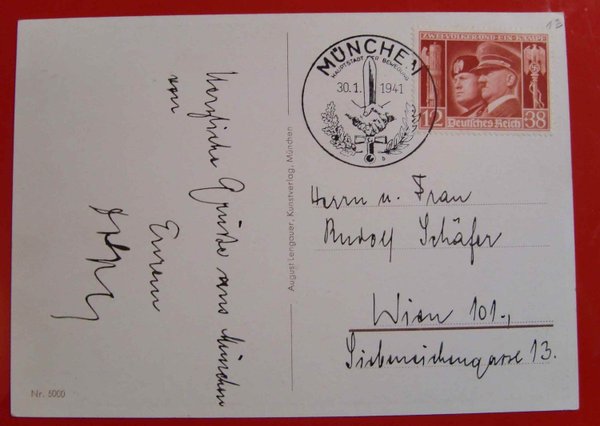 13
ZWEI VÖLKER UND EIN KAMPF
12 Deutsches Reich 38
MÜNCHEN
HAUPTSTADT DER BEWEGUNG
30.1. 1941
b
Herzliche Grüße aus München
von
Eurem
August Lengauer, Kunstverlag, München
Herrn u. Frau
Rudolf Schäfer
Wien 101.,
Siebeneichengasse 13.
Nr. 5000